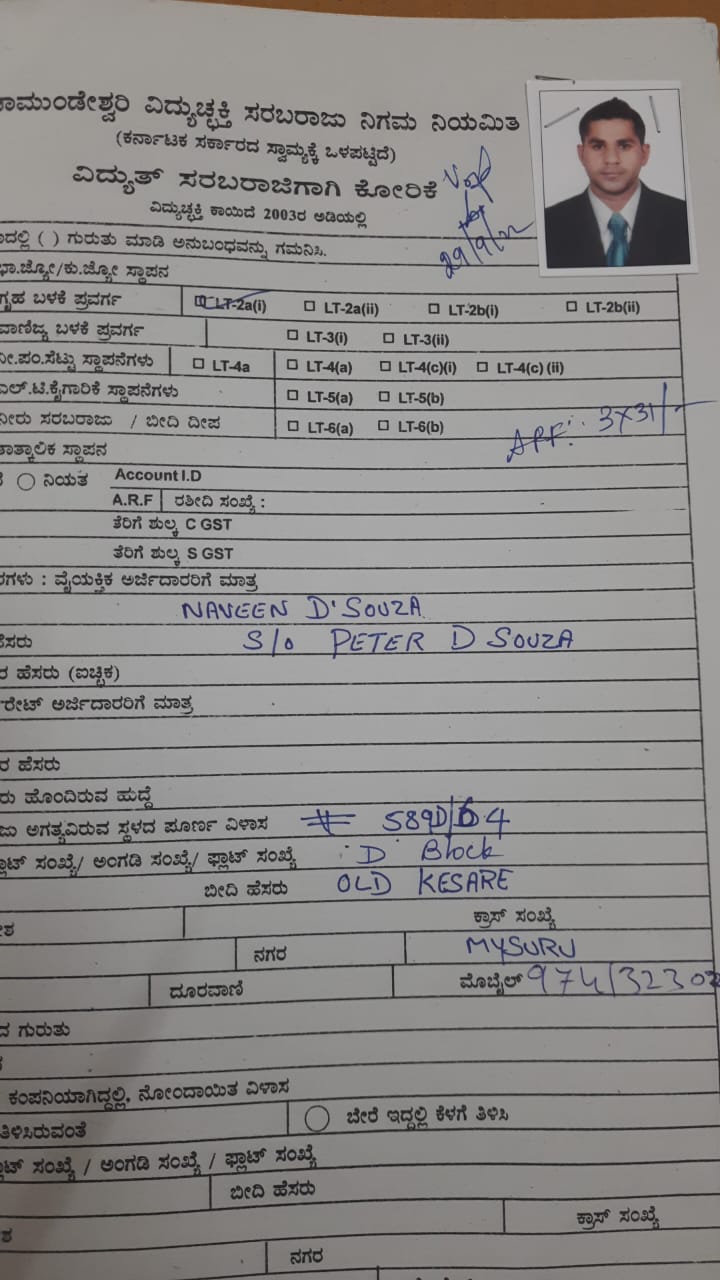 ಾಮುಂಡೇಶ್ವರಿ ವಿದ್ಯುಚ್ಛಕ್ತಿ ಸರಬರಾಜು ನಿಗಮ ನಿಯಮಿತ
(ಕರ್ನಾಟಕ ಸರ್ಕಾರದ ಸ್ವಾಮ್ಯಕ್ಕೆ ಒಳಪಟ್ಟಿದೆ)
ವಿದ್ಯುತ್ ಸರಬರಾಜಿಗಾಗಿ ಕೋರಿಕೆ
ವಿದ್ಯುಚ್ಛಕ್ತಿ ಕಾಯಿದೆ 2003ರ ಅಡಿಯಲ್ಲಿ
29/9/22
ದಲ್ಲಿ ( ) ಗುರುತು ಮಾಡಿ ಅನುಬಂಧವನ್ನು ಗಮನಿಸಿ.
ಭಾ.ಜ್ಯೋ/ಕು.ಜ್ಯೋ ಸ್ಥಾಪನ
ಗೃಹ ಬಳಕೆ ಪ್ರವರ್ಗ LT-2a(i) LT-2a(ii) LT-2b(i) LT-2b(ii)
ವಾಣಿಜ್ಯ ಬಳಕೆ ಪ್ರವರ್ಗ LT-3(i) LT-3(ii)
ನೀ.ಪಂ.ಸೆಟ್ಟು ಸ್ಥಾಪನೆಗಳು LT-4a LT-4(a) LT-4(c)(i) LT-4(c) (ii)
ಎಲ್.ಟಿ.ಕೈಗಾರಿಕೆ ಸ್ಥಾಪನೆಗಳು LT-5(a) LT-5(b)
ನೀರು ಸರಬರಾಜು / ಬೀದಿ ದೀಪ LT-6(a) LT-6(b)
ARF: 3X31/-
ತಾತ್ಕಾಲಿಕ ಸ್ಥಾಪನ
ನಿಯತ Account I.D
A.R.F ರಶೀದಿ ಸಂಖ್ಯೆ :
ತೆರಿಗೆ ಶುಲ್ಕ C GST
ತೆರಿಗೆ ಶುಲ್ಕ S GST
ರಗಳು : ವೈಯಕ್ತಿಕ ಅರ್ಜಿದಾರರಿಗೆ ಮಾತ್ರ
NAVEEN D'SOUZA
ಹೆಸರು S/o PETER D SOUZA
ರ ಹೆಸರು (ಐಚ್ಛಿಕ)
ರೇಟ್ ಅರ್ಜಿದಾರರಿಗೆ ಮಾತ್ರ
ರ ಹೆಸರು
ರು ಹೊಂದಿರುವ ಹುದ್ದೆ
ಜು ಅಗತ್ಯವಿರುವ ಸ್ಥಳದ ಪೂರ್ಣ ವಿಳಾಸ # 589D/64
ಲಾಟ್ ಸಂಖ್ಯೆ/ ಅಂಗಡಿ ಸಂಖ್ಯೆ/ ಫ್ಲಾಟ್ ಸಂಖ್ಯೆ 'D' Block
ಬೀದಿ ಹೆಸರು OLD KESARE
ಶ ಕ್ರಾಸ್ ಸಂಖ್ಯೆ
ನಗರ MYSURU
ದೂರವಾಣಿ ಮೊಬೈಲ್ 974132302
ದ ಗುರುತು
ಕಂಪನಿಯಾಗಿದ್ದಲ್ಲಿ, ನೋಂದಾಯಿತ ವಿಳಾಸ
ತಿಳಿಸಿರುವಂತೆ ಬೇರೆ ಇದ್ದಲ್ಲಿ ಕೆಳಗೆ ತಿಳಿಸಿ
ಲಾಟ್ ಸಂಖ್ಯೆ / ಅಂಗಡಿ ಸಂಖ್ಯೆ / ಫ್ಲಾಟ್ ಸಂಖ್ಯೆ
ಬೀದಿ ಹೆಸರು
ಶ ಕ್ರಾಸ್ ಸಂಖ್ಯೆ
ನಗರ